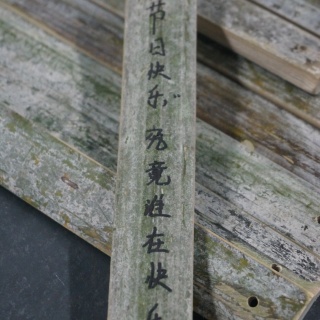 节日快乐"究竟谁在快乐